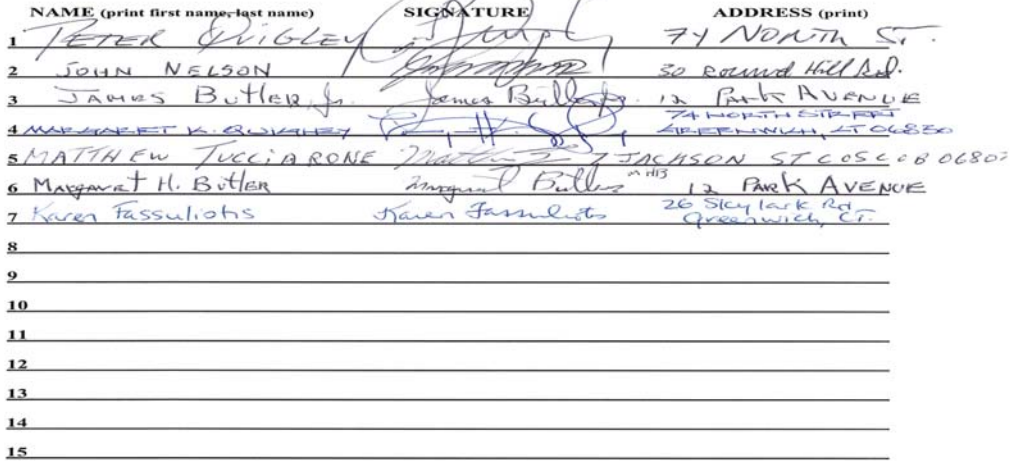 NAME (print first name, last name) SIGNATURE ADDRESS (print)
1 PETER QUIGLEY 74 NORTH ST.
2 JOHN NELSON 30 Round Hill Rd.
3 JAMES BUTLER, Jr. James Butler Jr. 12 PARK AVENUE
4 MARGARET K. QUIGLEY 74 NORTH STREET
GREENWICH, CT 06830
5 MATTHEW TUCCIARONE 7 JACKSON ST COS COB 06807
6 MARGARET H. BUTLER Margaret Butler MHB 12 PARK AVENUE
7 Karen Fassuliotis Karen Fassuliotis 26 Skylark Rd
Greenwich, CT.
8
9
10
11
12
13
14
15